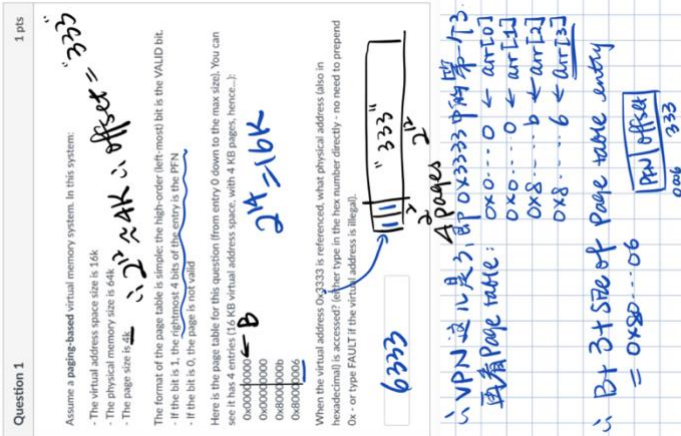 Question 1
1 pts
Assume a paging-based virtual memory system. In this system:
- The virtual address space size is 16k
- The physical memory size is 64k
- The page size is 4k
∴ 2¹² ≈ 4K ∴ offset = "333"
The format of the page table is simple: the high-order (left-most) bit is the VALID bit.
- If the bit is 1, the rightmost 4 bits of the entry is the PFN
- If the bit is 0, the page is not valid
Here is the page table for this question (from entry 0 down to the max size). You can
see it has 4 entries (16 KB virtual address space, with 4 KB pages, hence...):
0x00000000 ← B
0x00000000
0x8000000b
0x80000006
2¹⁴=16K
When the virtual address 0x3333 is referenced, what physical address (also in
hexadecimal) is accessed? (either type in the hex number directly - no need to prepend
0x - or type FAULT if the virtual address is illegal).
6333
"333"
2² 2¹²
4 pages
∴ VPN 这儿是3, 即 0x3333 中的第一个3.
再看 Page table: 0x0---0 ← arr[0]
0x0---0 ← arr[1]
0x8---b ← arr[2]
0x8---6 ← arr[3]
∴ B+3*size of page table entry
= 0x80---06
PFN | offset
0x06 333